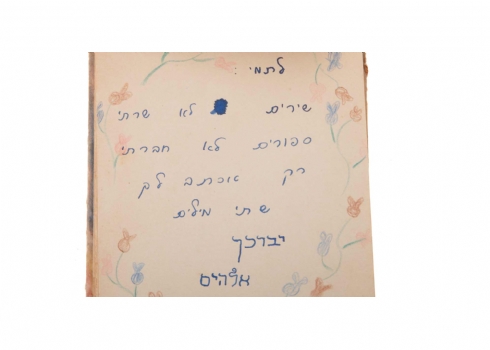 לתמי :
שירים לא שרתי
ספורים לא חברתי
רק אכתב לך
שתי מילים
יברכך
אלהים